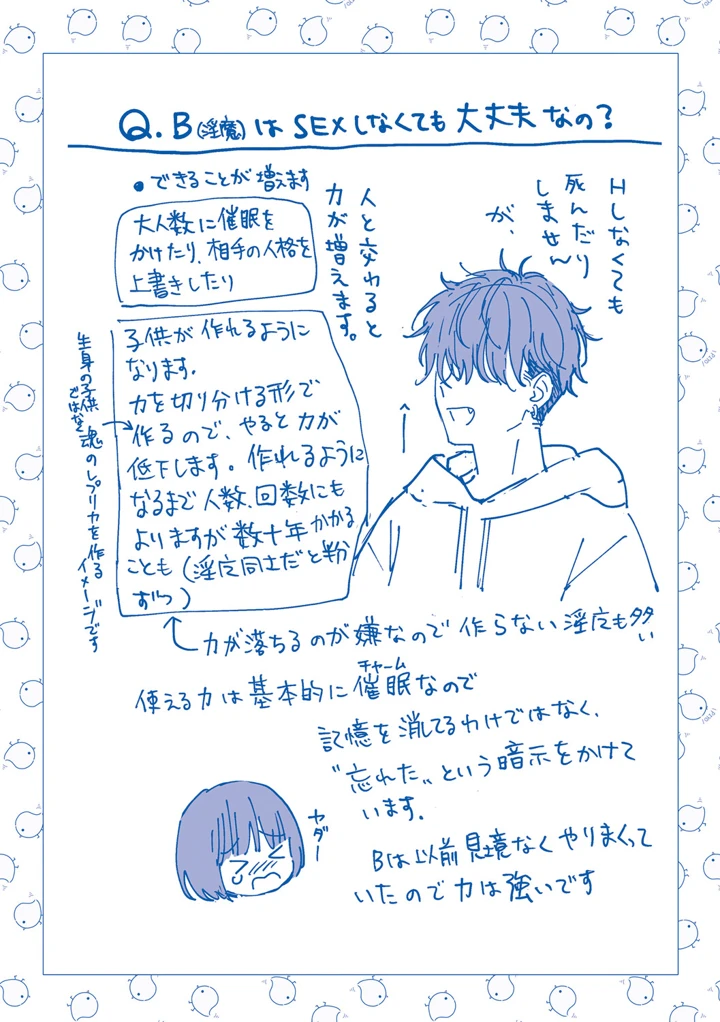 Q. B(淫魔)はSEXしなくても大丈夫なの?
Hしなくても
死んだり
しません
が、
人と交わると
力が増えます。
●できることが増えます
大人数に催眠を
かけたり、相手の人格を
上書きしたり
子供が作れるように
なります。
力を切り分ける形で
作るので、やると力が
低下します。作れるように
なるまで人数、回数にも
よりますが数十年かかる
ことも(淫魔同士だと半分
ずつ)
生身の子供
ではなく魂のレプリカを作る
イメージです
力が落ちるのが嫌なので作らない淫魔も多い
チャーム
使える力は基本的に催眠なので
記憶を消してるわけではなく、
〝忘れた〟という暗示をかけて
います。
ヤダー
Bは以前見境なくやりまくって
いたので力は強いです